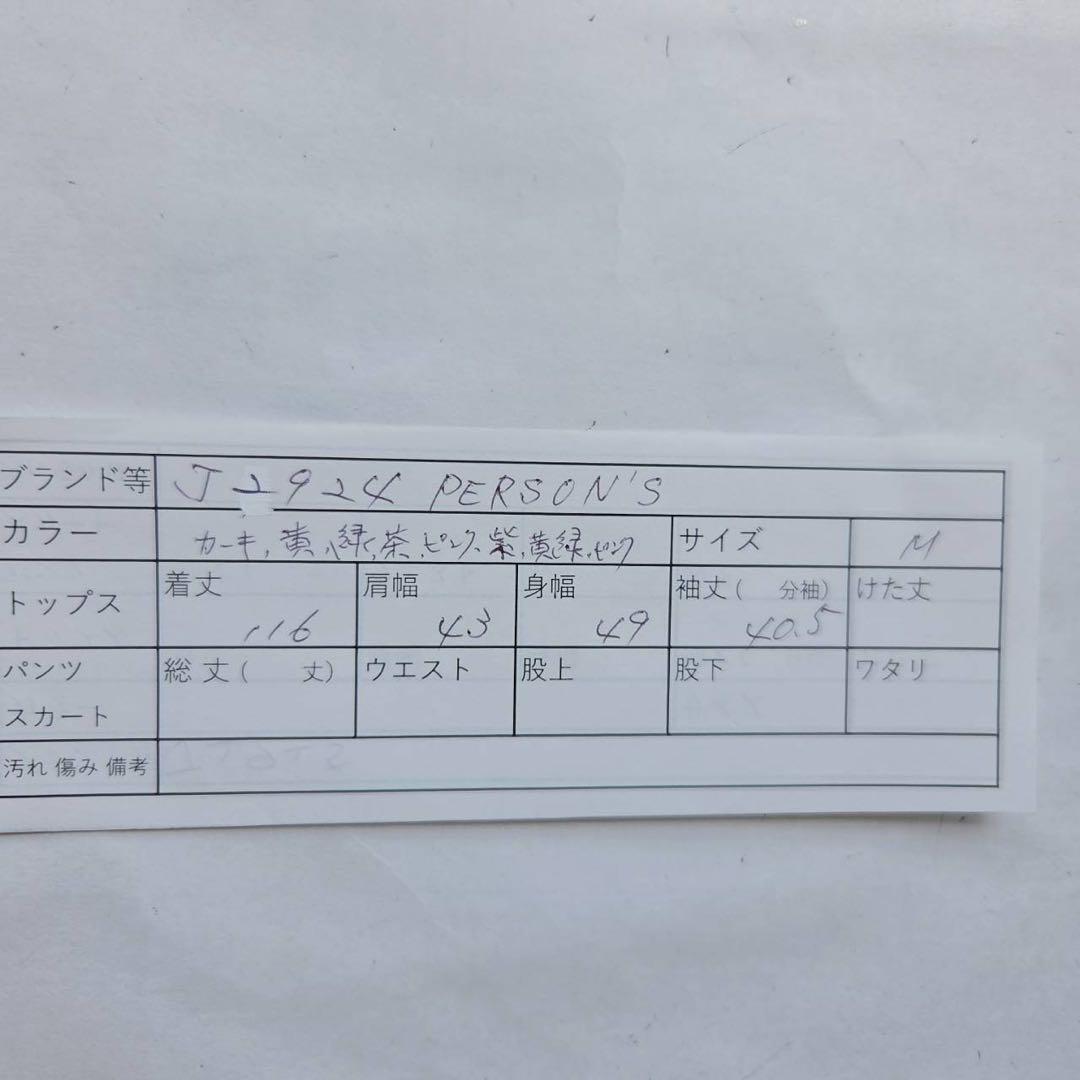 ブランド等 J2924 PERSON'S
カラー カーキ、黄、緑、茶、ピンク、紫、黄緑、ピンク サイズ M
トップス 着丈 116 肩幅 43 身幅 49 袖丈( 分袖) 40.5 けた丈
パンツ 総丈( 丈) ウエスト 股上 股下 ワタリ
スカート
汚れ 傷み 備考